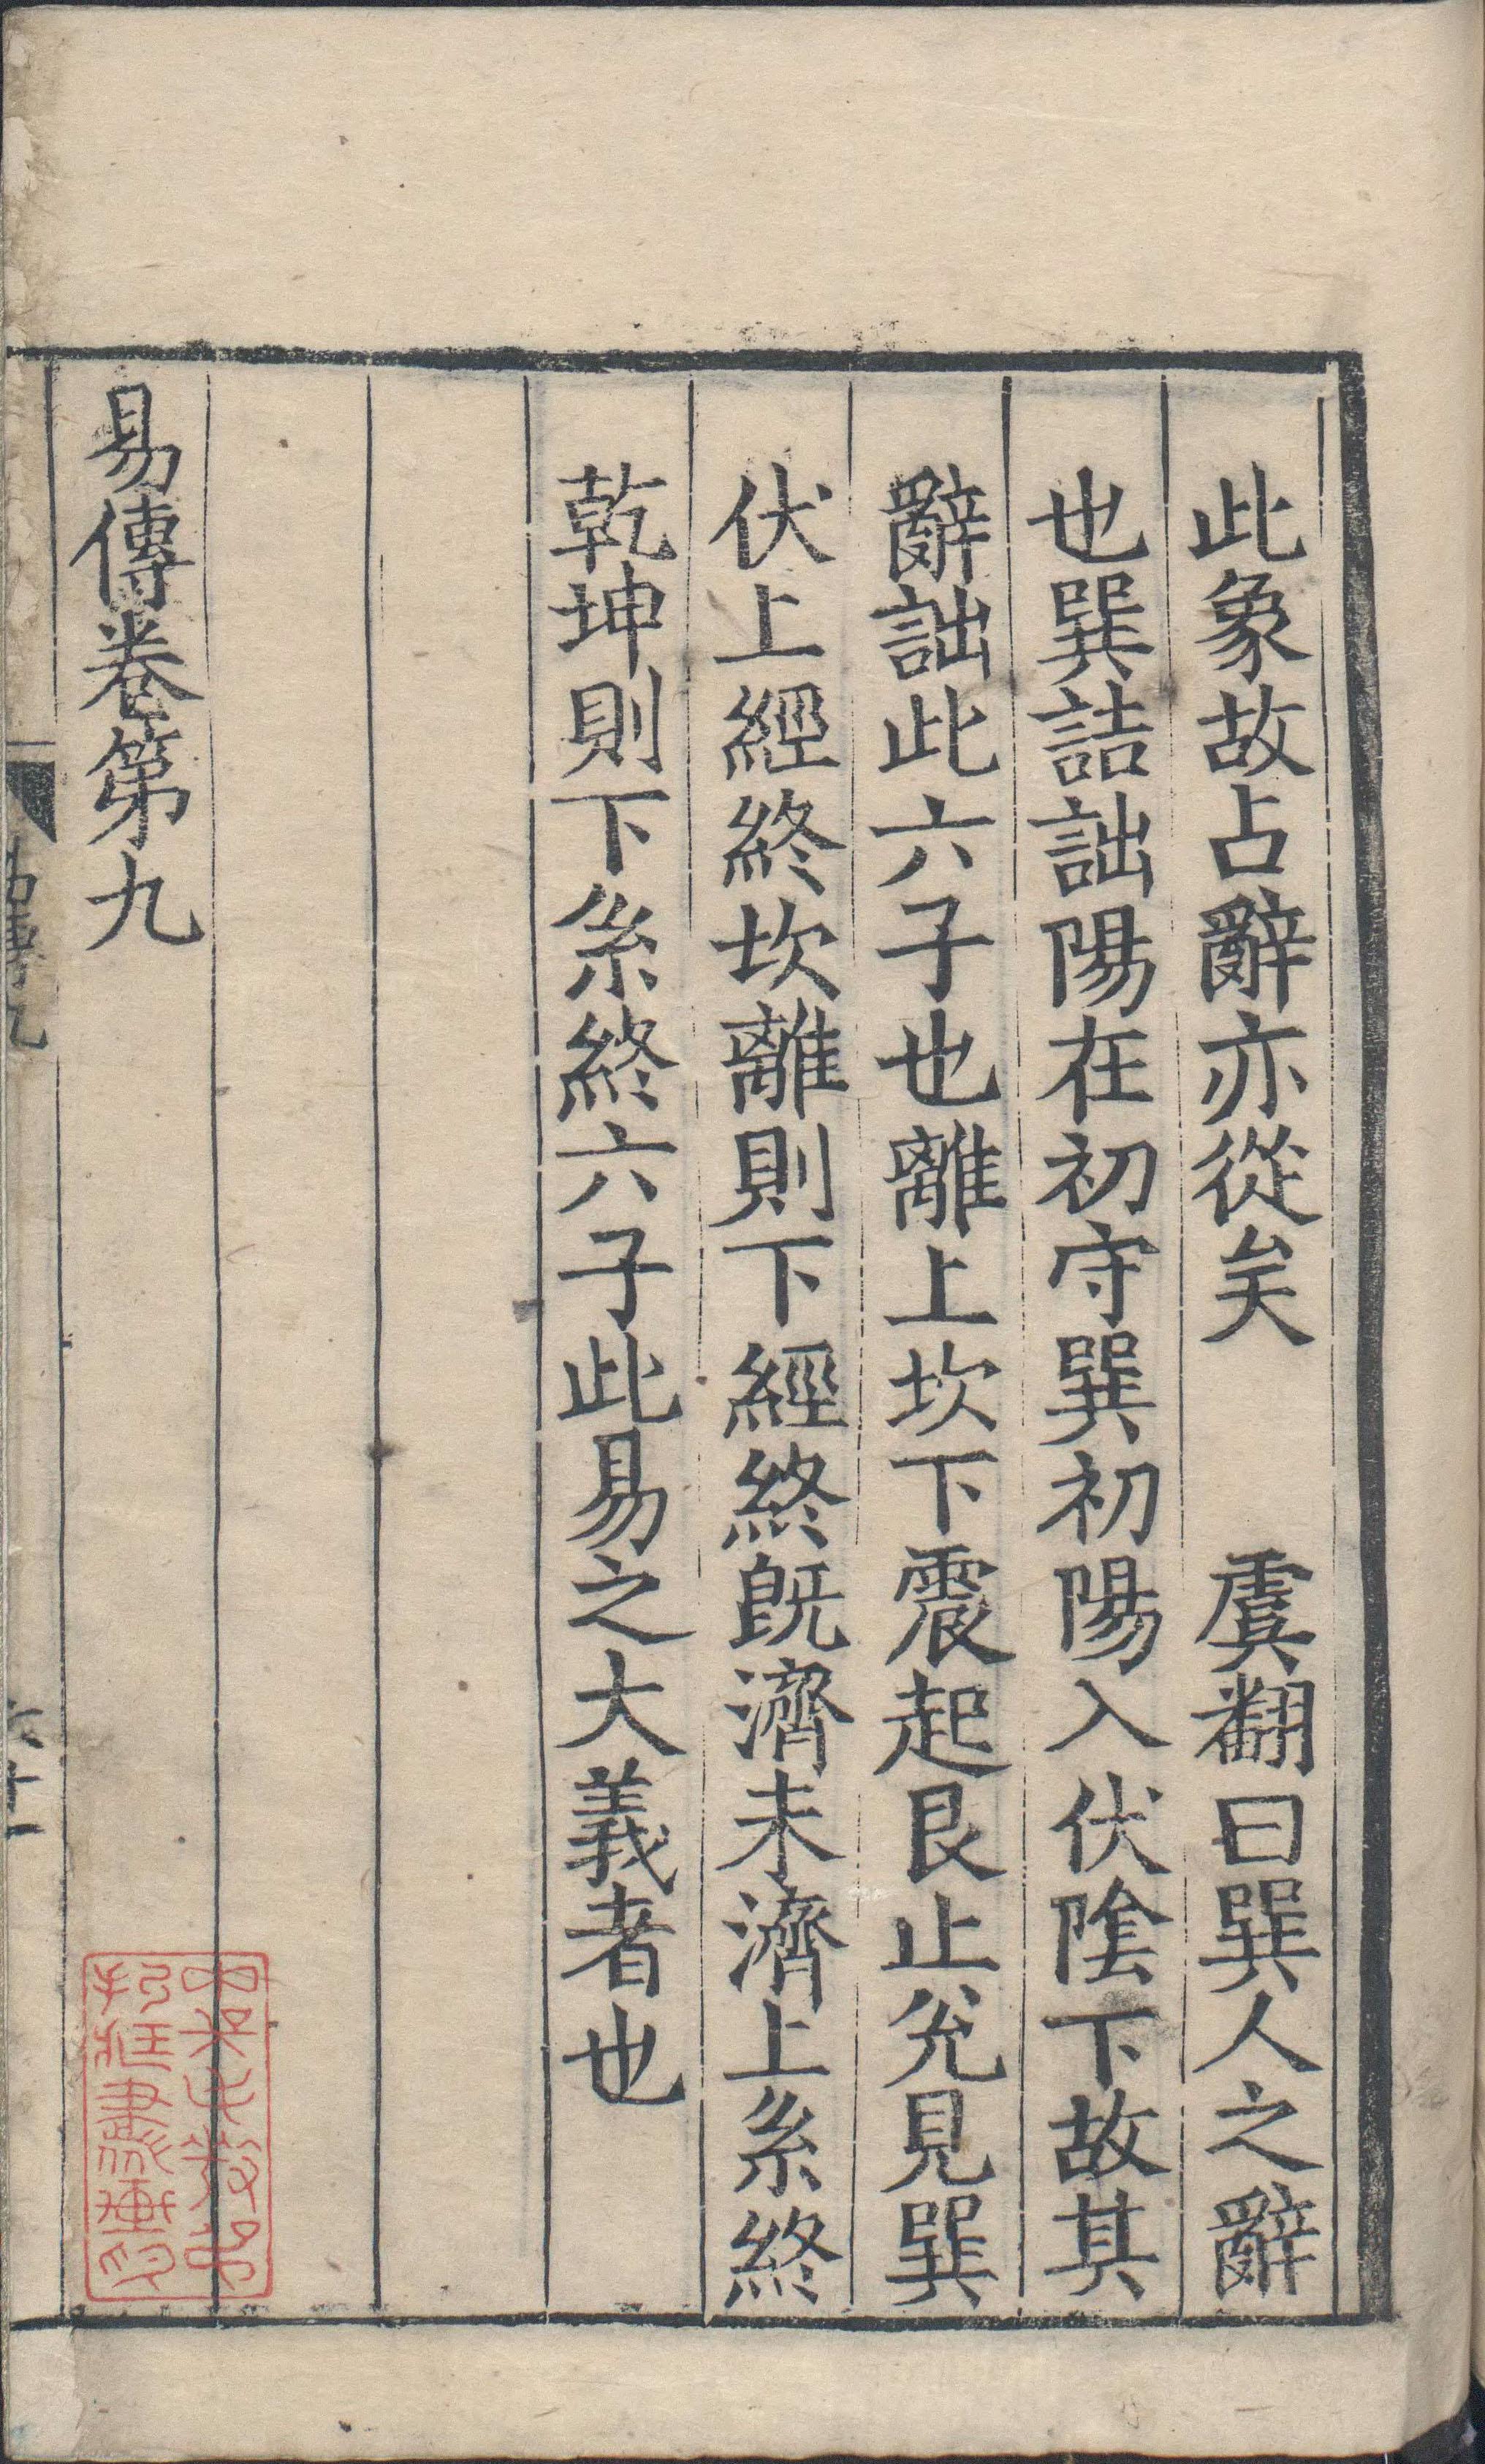 此象故占辭亦從矣　虞翻曰巽人之辭
也巽詰詘陽在初守巽初陽入伏隂下故其
辭詘此六子也離上坎下震起艮止兊見巽
伏上經終坎離則下經終旣濟未濟上糸終
乾坤則下糸終六子此易之大義者也
易傳卷第九